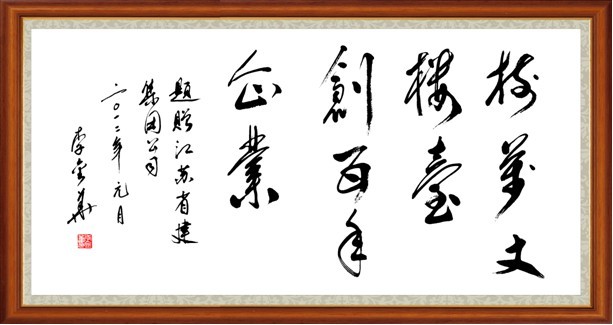 树萬丈
楼臺
創百年
企業
題贈江苏省建
集团公司
二〇一二年元月
李金華